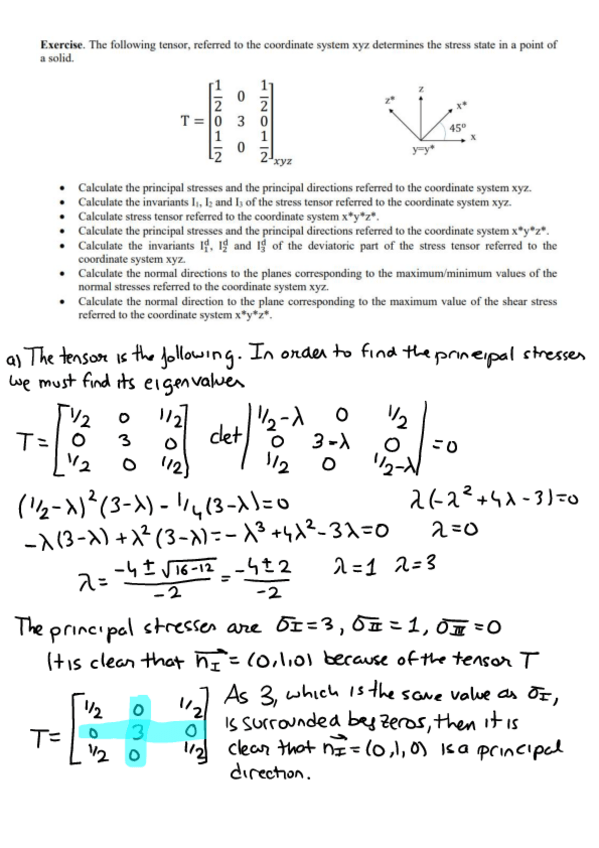 Exercise. The following tensor, referred to the coordinate system xyz determines the stress state in a point of
a solid.
T = [1/2 0 1/2
0 3 0
1/2 0 1/2]xyz
z*
z
x*
45º
x
y=y*
• Calculate the principal stresses and the principal directions referred to the coordinate system xyz.
• Calculate the invariants I₁, I₂ and I₃ of the stress tensor referred to the coordinate system xyz.
• Calculate stress tensor referred to the coordinate system x*y*z*.
• Calculate the principal stresses and the principal directions referred to the coordinate system x*y*z*.
• Calculate the invariants I₁ᵈ, I₂ᵈ and I₃ᵈ of the deviatoric part of the stress tensor referred to the
coordinate system xyz.
• Calculate the normal directions to the planes corresponding to the maximum/minimum values of the
normal stresses referred to the coordinate system xyz.
• Calculate the normal direction to the plane corresponding to the maximum value of the shear stress
referred to the coordinate system x*y*z*.
a) The tensor is the following. In order to find the principal stresses
we must find its eigenvalues
T = [1/2 0 1/2
0 3 0
1/2 0 1/2]
det |1/2-λ 0 1/2
0 3-λ 0
1/2 0 1/2-λ| = 0
(1/2-λ)²(3-λ) - 1/4(3-λ)=0
λ(-λ²+4λ-3)=0
-λ(3-λ)+λ²(3-λ)=-λ³+4λ²-3λ=0
λ=0
λ = (-4±√16-12)/-2 = (-4±2)/-2
λ=1 λ=3
The principal stresses are σI=3, σII=1, σIII=0
It is clear that nI→=(0,1,0) because of the tensor T
T= [1/2 0 1/2
0 3 0
1/2 0 1/2]
As 3, which is the same value as σI,
is surrounded by zeros, then it is
clear that nI→=(0,1,0) is a principal
direction.